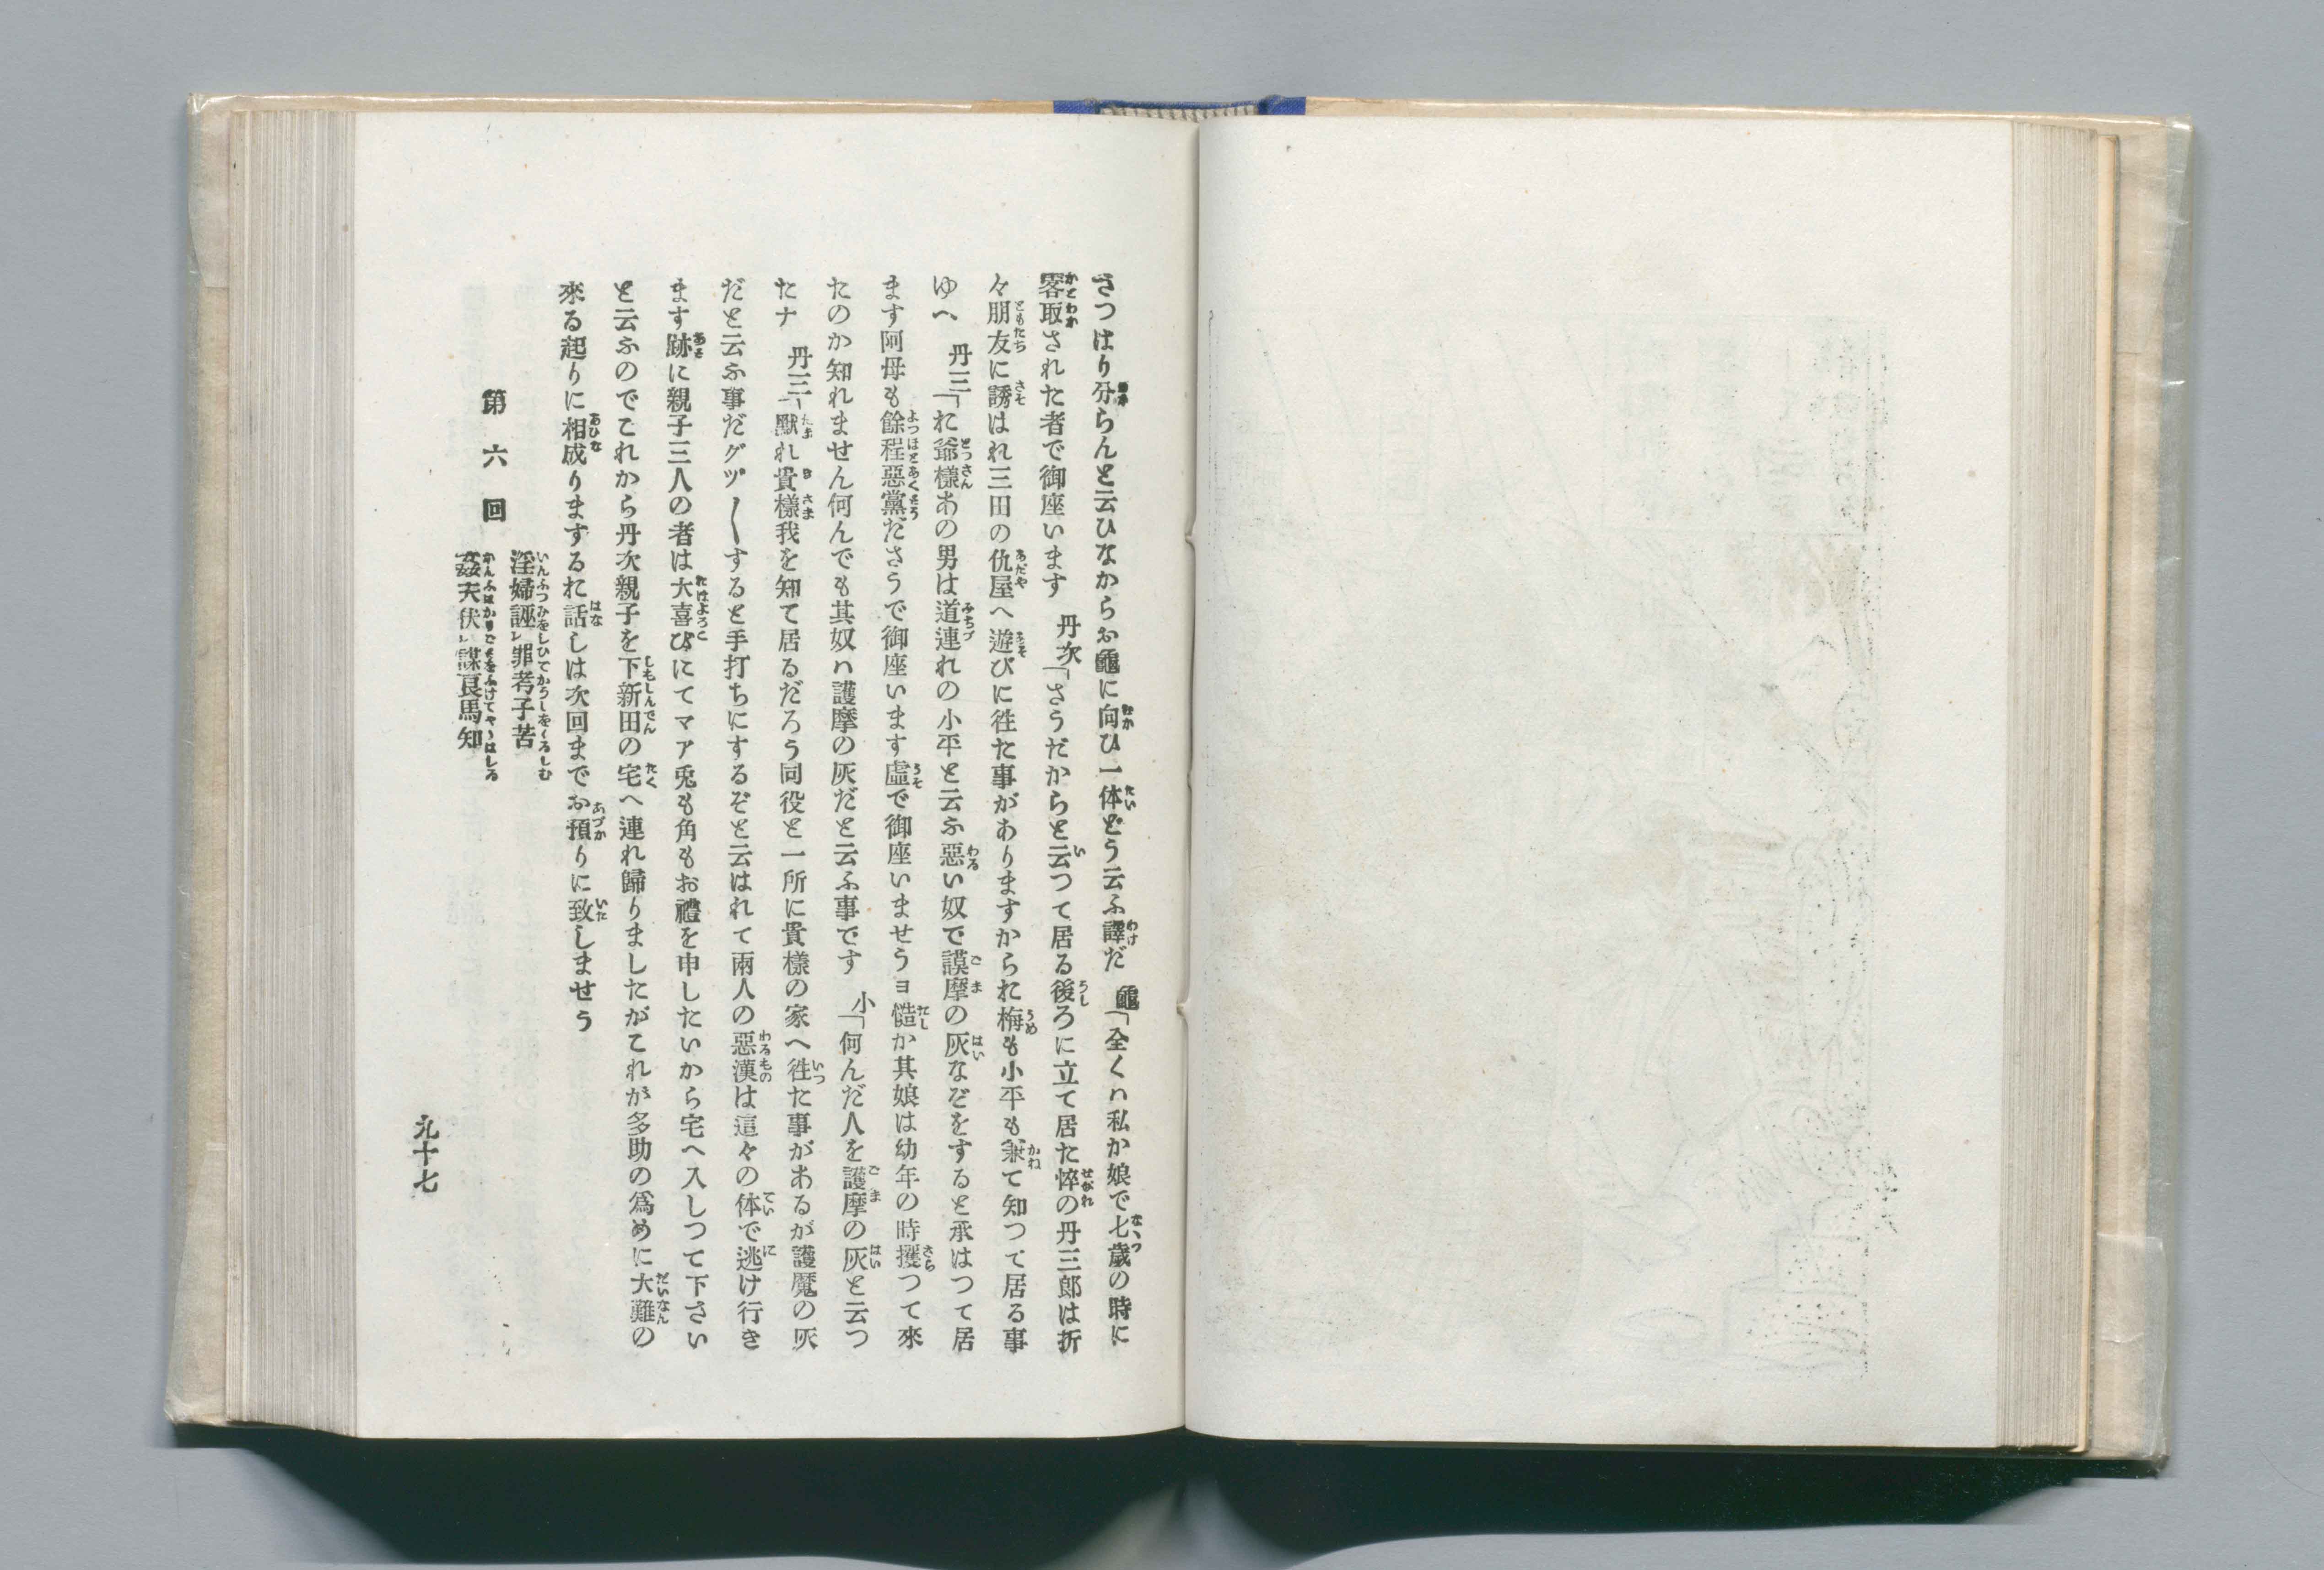 さつはり分らんと云ひなからお龜に向ひ一体どう云ふ譯だ　龜「全くハ私か娘で七歳の時に
零取された者で御座います　丹次「さうだからと云つて居る後ろに立て居た悴の丹三郎は折
々朋友に誘はれ三田の仇屋へ遊びに徃た事がありますからお梅も小平も兼て知つて居る事
ゆへ　丹三「お爺樣あの男は道連れの小平と云ふ惡い奴で護摩の灰なぞをすると承はつて居
ます阿母も餘程惡黨ださうで御座います虛で御座いませうヨ慥か其娘は幼年の時攫つて來
たのか知れません何んでも其奴ハ護摩の灰だと云ふ事です　小「何んだ人を護摩の灰と云つ
たナ　丹三「默れ貴樣我を知て居るだろう同役と一所に貴樣の家へ徃た事があるが護魔の灰
だと云ふ事だグヅ〱すると手打ちにするぞと云はれて兩人の惡漢は這々の体で逃け行き
ます跡に親子三人の者は大喜びにてマア兎も角もお禮を申したいから宅へ入しつて下さい
と云ふのでこれから丹次親子を下新田の宅へ連れ歸りましたがこれが多助の爲めに大難の
來る起りに相成りまするお話しは次回までお預りに致しませう
第六回
淫婦誣レ罪考子苦
姦夫伏レ謀良馬知
九十七